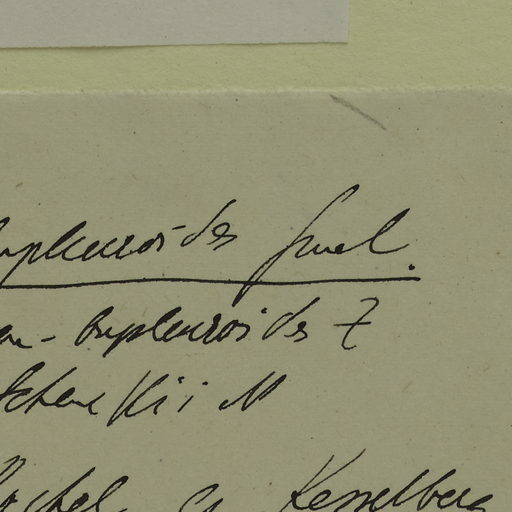 bupleuroides Gmel.
en- bupleuroides Z
Schenkii M
Kesselberg